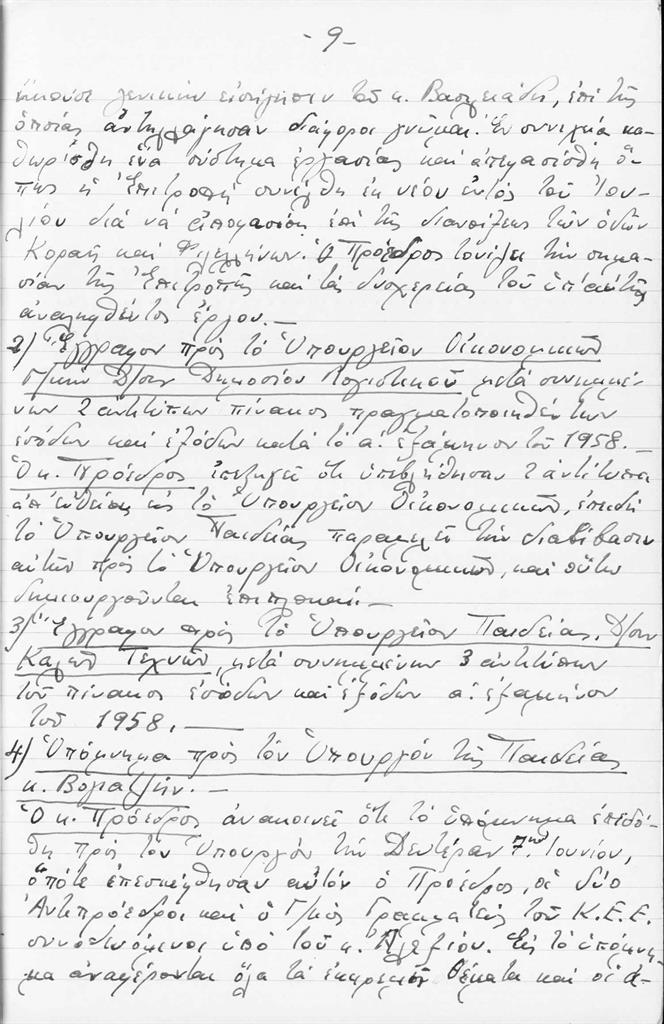 - 9 -
ἤκουσε γενικὴν εἰσήγησιν τοῦ κ. Βασιλειάδη, ἐπὶ τῆς
ὁποίας ἀντηλλάγησαν διάφοροι γνῶμαι. Ἐν συνεχείᾳ κα-
θωρίσθη ἕνα σύστημα ἐργασίας καὶ ἀπεφασίσθη ὅ-
πως ἡ Ἐπιτροπὴ συνέλθη ἐκ νέου ἐντὸς τοῦ Ἰου-
λίου διὰ νὰ ἀποφασίση ἐπὶ τῆς διανοίξεως τῶν ὁδῶν
Κοραῆ καὶ Φιλελλήνων. Ὁ Πρόεδρος τονίζει τὴν σημα-
σίαν τῆς Ἐπιτροπῆς καὶ τὰς δυσχερείας τοῦ ὑπ' αὐτῆς
ἀναληφθέντος ἔργου.—
2) Ἔγγραφον πρὸς τὸ Ὑπουργεῖον Οἰκονομικῶν
Γ/κὴν Δ/σιν Δημοσίου Λογιστικοῦ μετὰ συνημμέ-
νων 2 ἀντιτύπων πίνακος πραγματοποιηθέντων
ἐσόδων καὶ ἐξόδων κατὰ τὸ α. ἑξάμηνον τοῦ 1958.—
Ὁ κ. Πρόεδρος ἐπεξηγεῖ ὅτι ὑπεβλήθησαν 2 ἀντίτυπα
ἀπ' εὐθείας εἰς τὸ Ὑπουργεῖον Οἰκονομικῶν, ἐπειδὴ
τὸ Ὑπουργεῖον Παιδείας παραμελεῖ τὴν διαβίβασιν
αὐτῶν πρὸς τὸ Ὑπουργεῖον Οἰκονομικῶν, καὶ οὕτω
δημιουργοῦνται ἐπιπλοκαί.—
3) Ἔγγραφον πρὸς τὸ Ὑπουργεῖον Παιδείας, Δ/σιν
Καλῶν Τεχνῶν, μετὰ συνημμένων 3 ἀντιτύπων
τοῦ πίνακος ἐσόδων καὶ ἐξόδων α. ἑξαμήνου
τοῦ 1958.—
4) Ὑπόμνημα πρὸς τὸν Ὑπουργὸν τῆς Παιδείας
κ. Βογιατζῆν.—
Ὁ κ. Πρόεδρος ἀνακοινεῖ ὅτι τὸ ὑπόμνημα ἐπεδό-
θη πρὸς τὸν Ὑπουργὸν τὴν Δευτέραν 7ην Ἰουνίου,
ὁπότε ἐπεσκέφθησαν αὐτὸν ὁ Πρόεδρος, οἱ δύο
Ἀντιπρόεδροι καὶ ὁ Γ/κὸς Γραμματεὺς τοῦ Κ.Ε.Ε.
συνοδευόμενοι ὑπὸ τοῦ κ. Ἀλεξίου. Εἰς τὸ ὑπόμνη-
μα ἀναφέρονται ὅλα τὰ ἐκκρεμῆ θέματα καὶ οἱ ἀ-